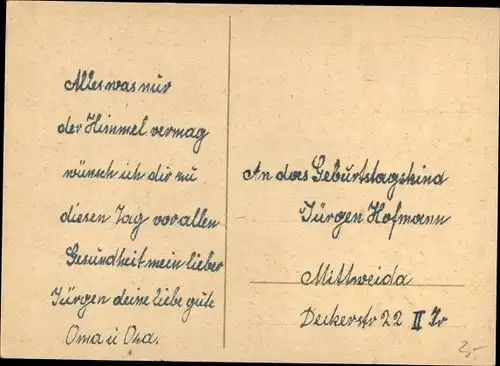 Alles was nur
der Himmel vermag
wünsch ich dir zu
diesen Tag vor allen
Gesundheit mein lieber
Jürgen deine liebe gute
Oma u Opa.
An das Geburtstagskind
Jürgen Hofmann
Mittweida
Deckerstr 22 II Tr